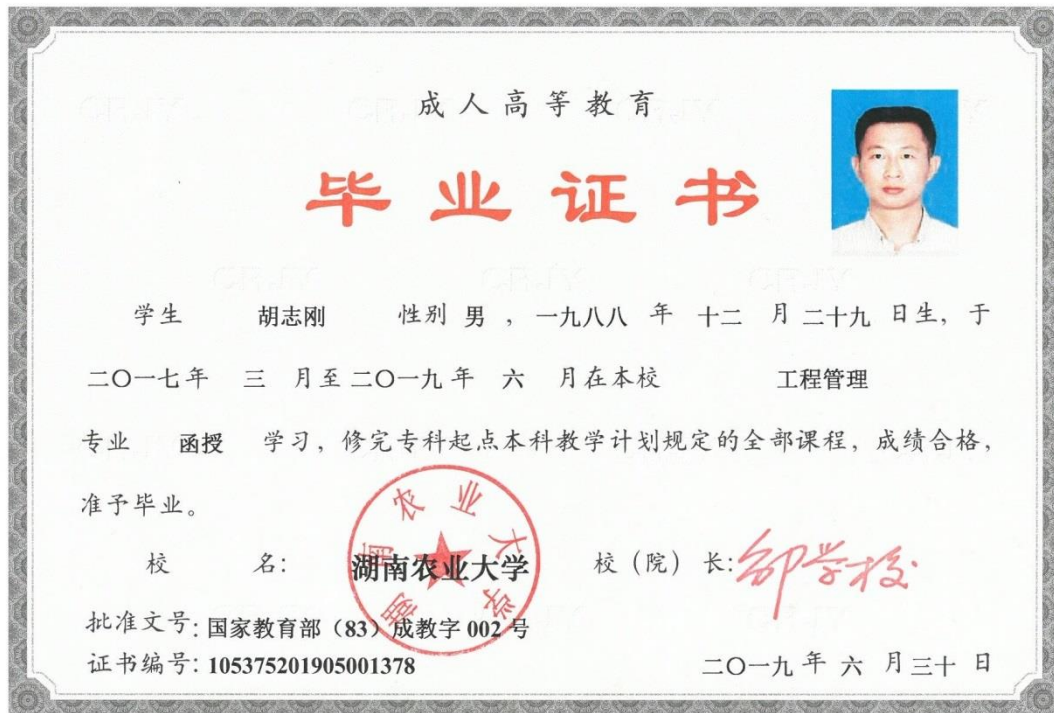 成人高等教育
毕业证书
学生 胡志刚 性别 男 ，一九八八 年 十二 月 二十九 日生，于
二〇一七年 三 月至二〇一九年 六 月在本校 工程管理
专业 函授 学习，修完专科起点本科教学计划规定的全部课程，成绩合格，
准予毕业。
湖南农业大学
校 名：湖南农业大学 校（院）长：邹学校
批准文号：国家教育部（83）成教字 002 号
证书编号：105375201905001378 二〇一九 年 六 月三十 日